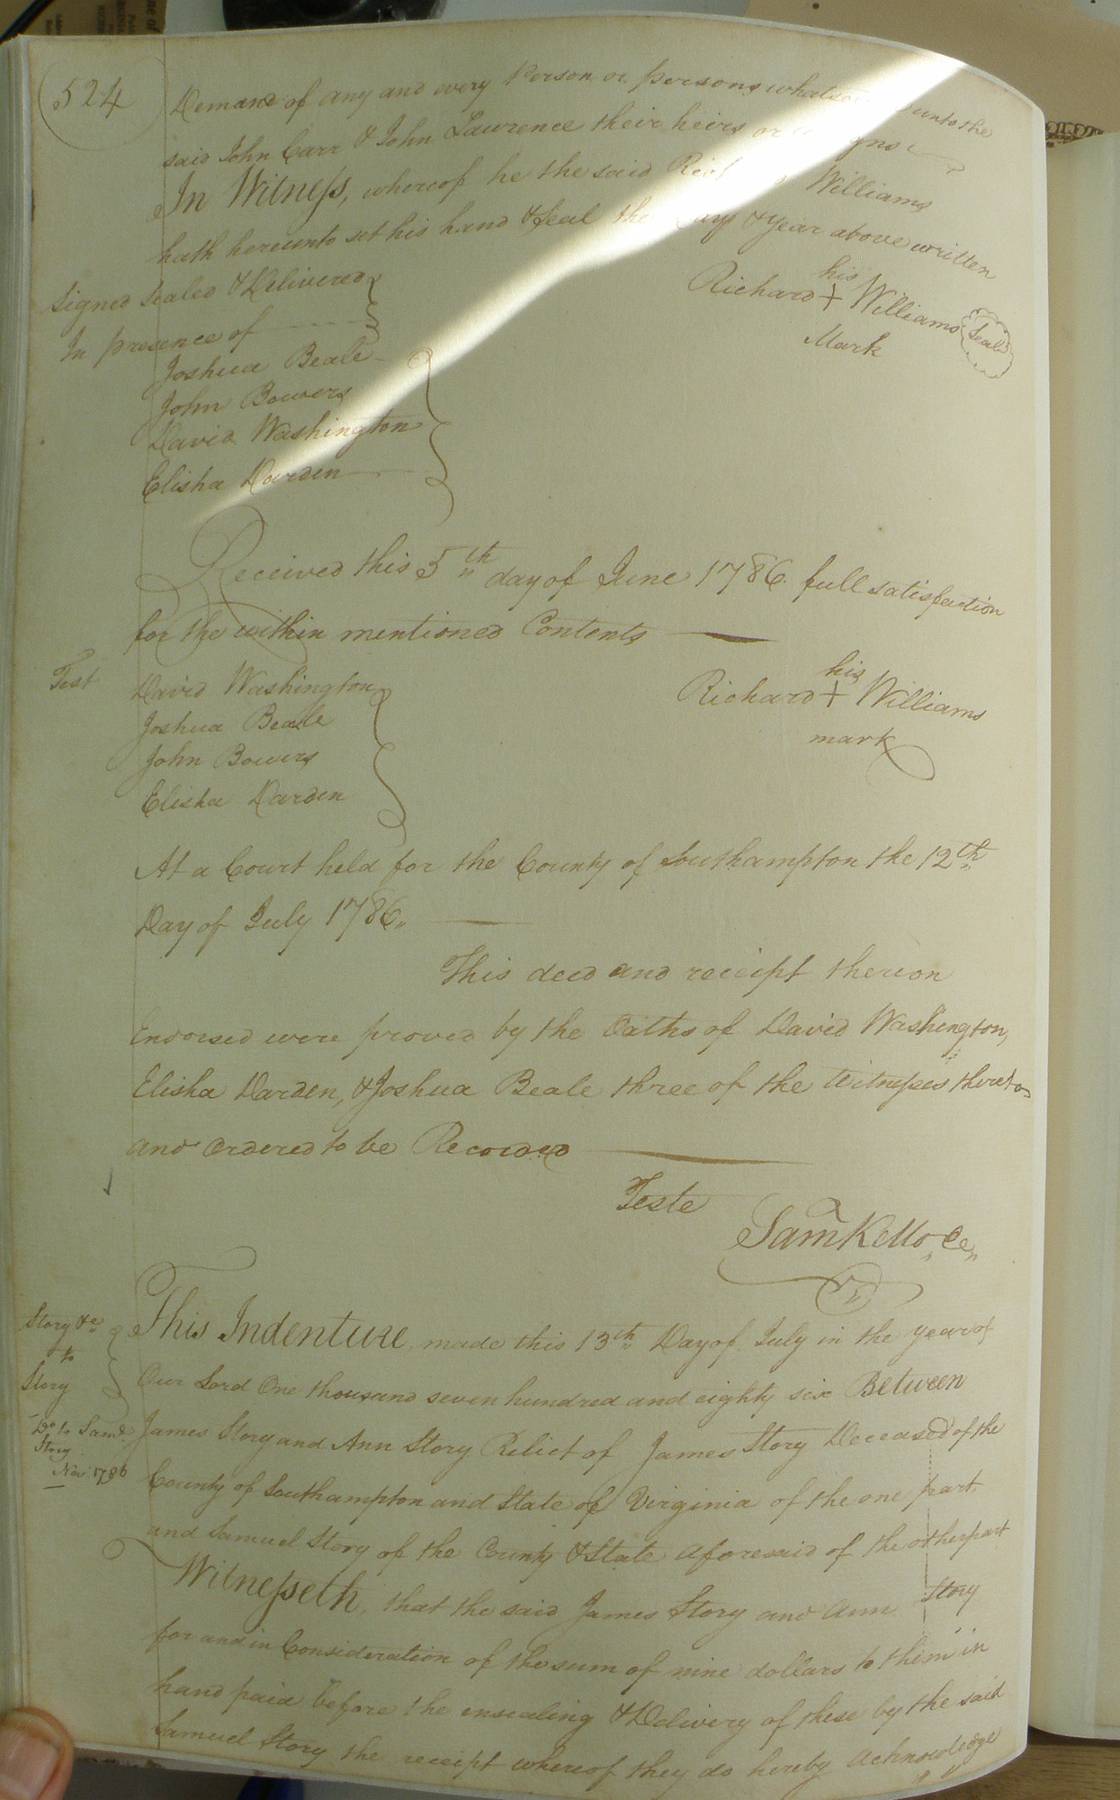 524
Demand of any and every Person or persons unto the
said John Carr & John Lawrence their heirs or
In Witness, whereof he the said Williams
hath hereunto set his hand & Seal the Day & Year above written
Signed Sealed & Delivered
In presence of
his
Richard + Williams Seal
Mark
Joshua Beale
John Bowers
David Washington
Elisha Darden
Received this 5th day of June 1786 full satisfaction
for the within mentioned Contents
Test
David Washington
Joshua Beale
John Bowers
Elisha Darden
his
Richard + Williams
mark
At a Court held for the County of Southampton the 12th
Day of July 1786
This deed and receipt thereon
Endorsed were proved by the Oaths of David Washington,
Elisha Darden, & Joshua Beale three of the Witnesses thereto
and ordered to be Recorded
Teste
Sam Kello, Cc
Story &c
to
Story
Do to Saml
Story
Nov 1786
This Indenture, made this 13th Day of July in the year of
Our Lord One thousand seven hundred and eighty six Between
James Story and Ann Story Relict of James Story Deceased of the
County of Southampton and State of Virginia of the one part
and Samuel Story of the County & State aforesaid of the other part
Witnesseth, that the said James Story and Ann Story
for and in Consideration of the sum of nine dollars to them in
hand paid before the ensealing & Delivery of these by the said
Samuel Story the receipt whereof they do hereby acknowledge